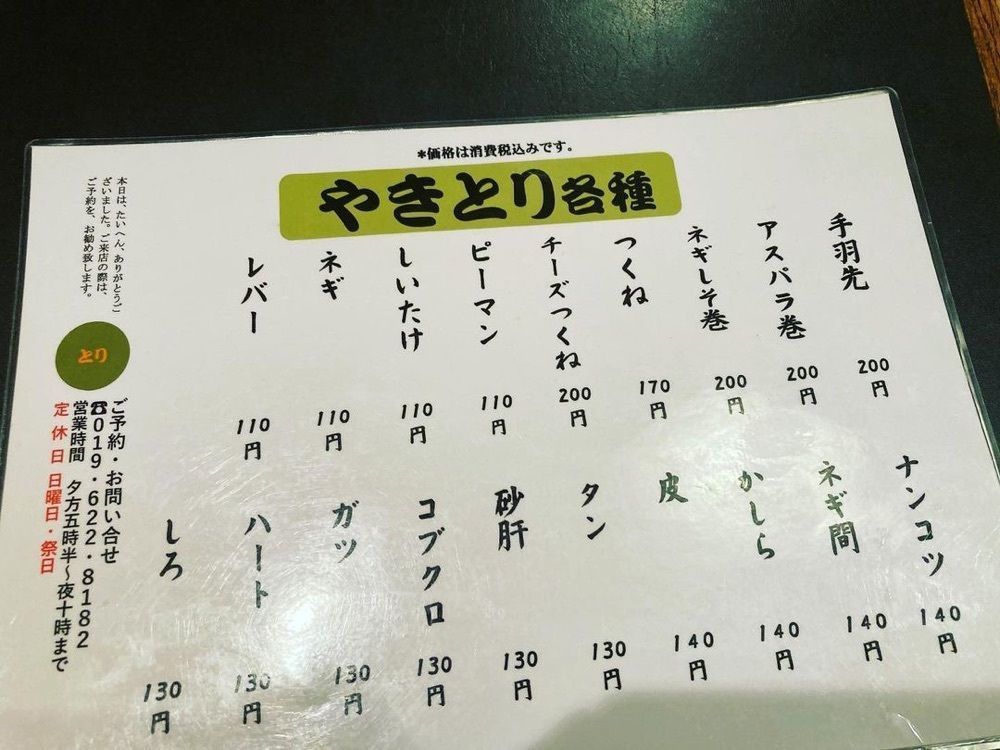 *価格は消費税込みです。
やきとり各種
手羽先 200円
アスパラ巻 200円
ネギしそ巻 200円
つくね 170円
チーズつくね 200円
ピーマン 110円
しいたけ 110円
ネギ 110円
レバー 110円
ナンコツ 140円
ネギ間 140円
かしら 140円
皮 140円
タン 130円
砂肝 130円
コブクロ 130円
ガツ 130円
ハート 130円
しろ 130円
本日は、たいへん、ありがとうご
ざいました。ご来店の際は、
ご予約を、お勧め致します。
とり
ご予約・お問い合せ
☎019・622・8182
営業時間 夕方五時半~夜十時まで
定休日 日曜日・祭日